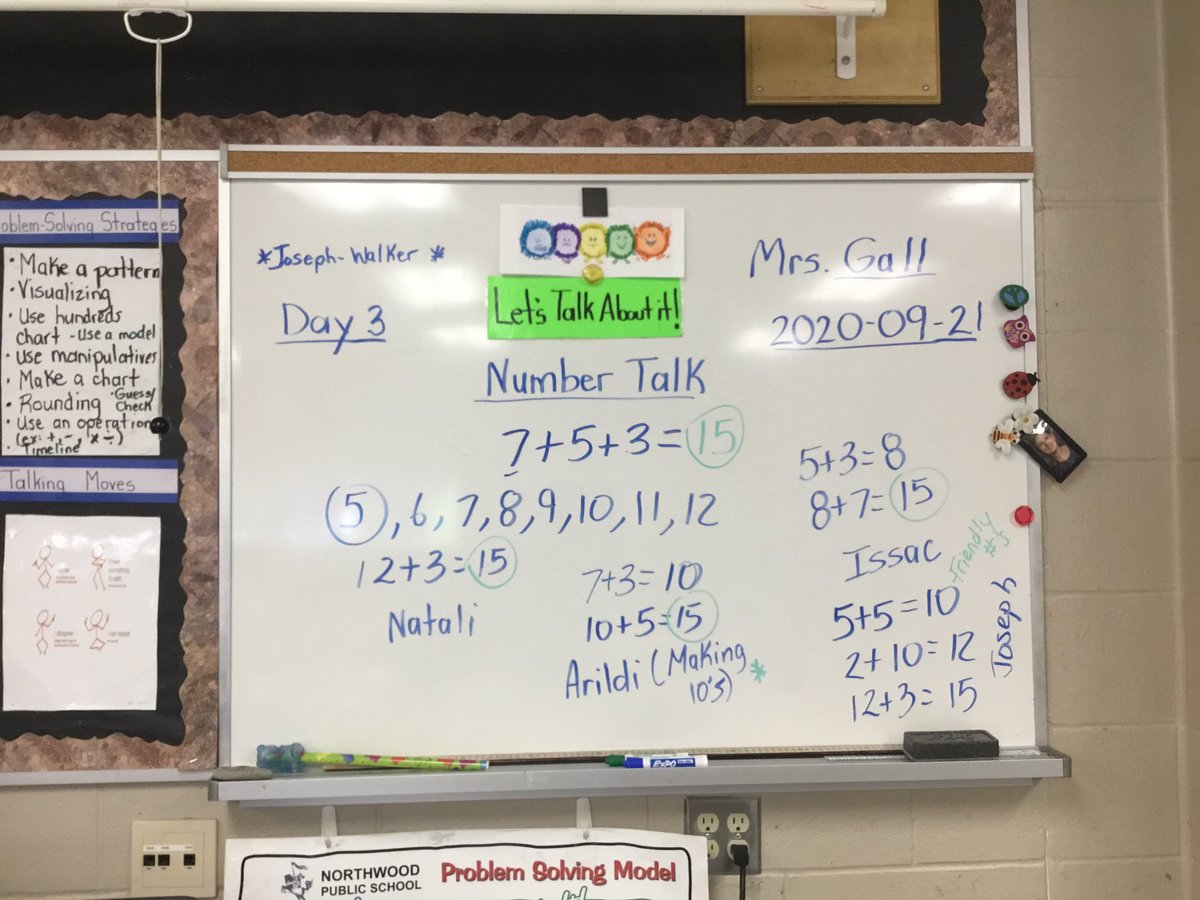 oblem-Solving Strategies
• Make a pattern
• Visualizing
• Use hundreds
chart - Use a model
• Use manipulatives
• Make a chart
• Rounding • Guess/
Check
• Use an operation
(ex: +, -, x ÷)
• Timeline
Talking Moves
*Joseph-Walker *
Day 3
Let's Talk About it!
Mrs. Gall
2020-09-21
Number Talk
7+5+3=15
5, 6, 7, 8, 9, 10, 11, 12
12+3=15
Natali
7+3=10
10+5=15
Arildi (Making
10's) *
5+3=8
8+7=15
Issac
friendly
#s
5+5=10
2+10=12
12+3=15
Joseph
EXPO
NORTHWOOD
PUBLIC SCHOOL
Problem Solving Model